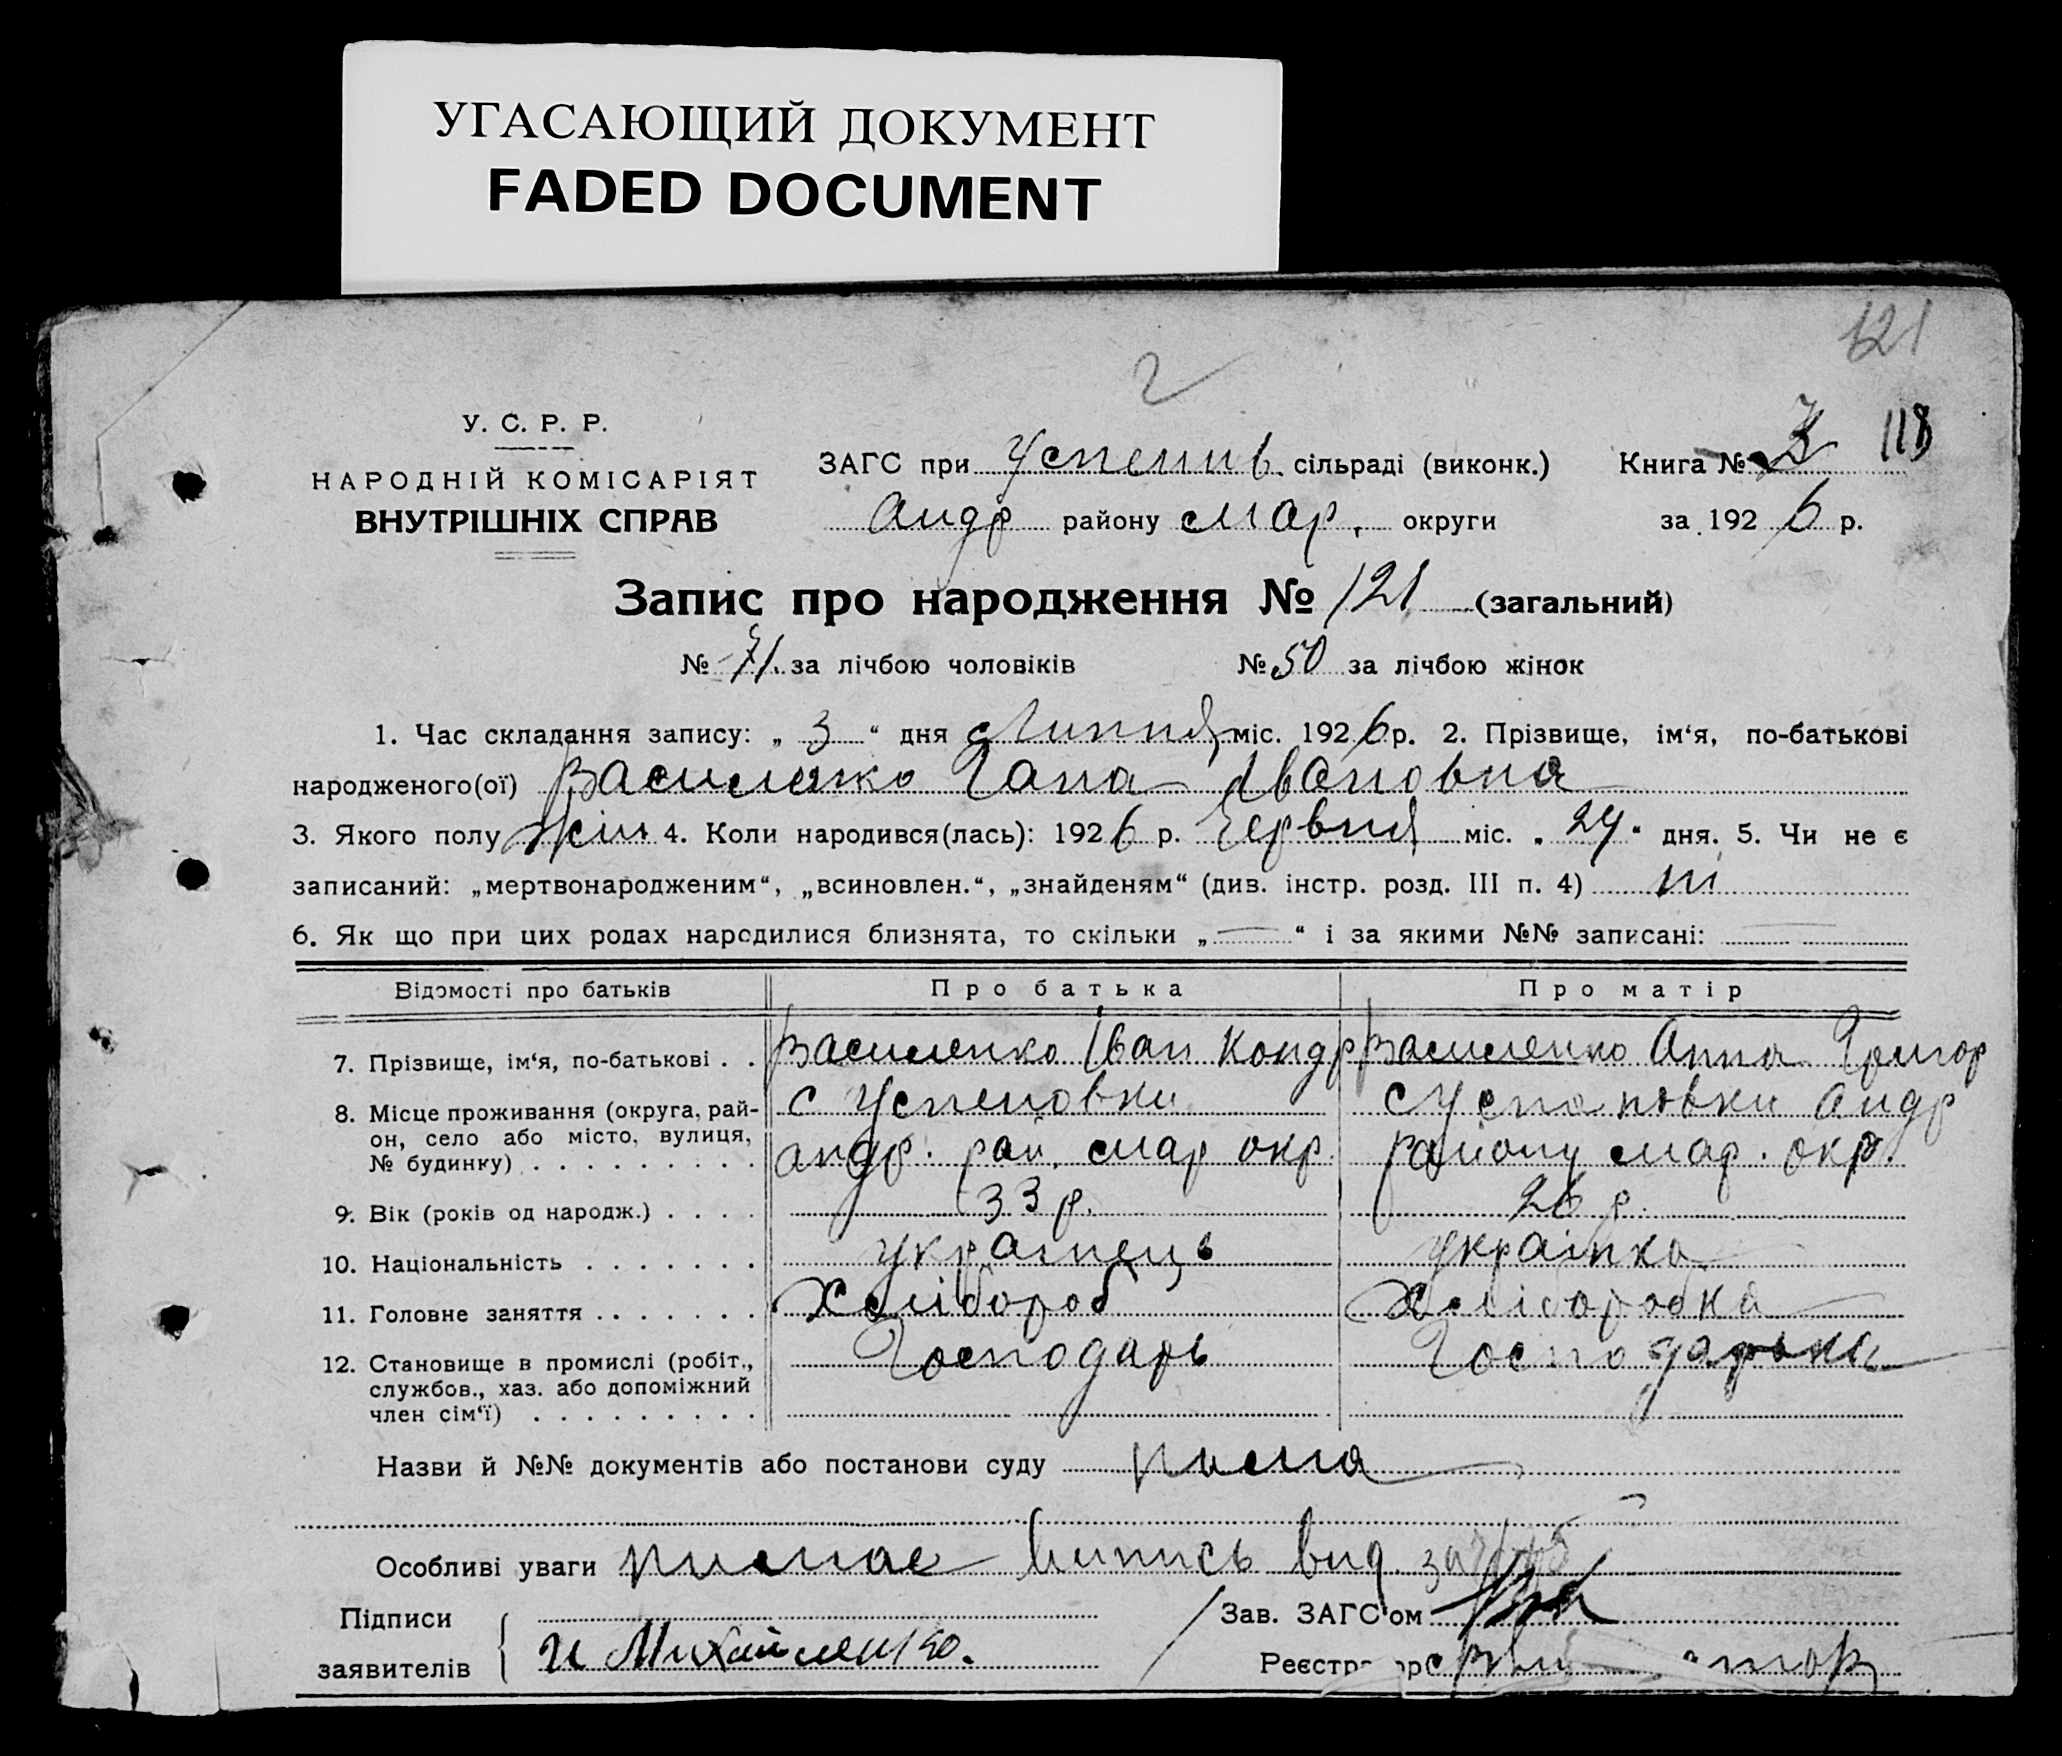 УГАСАЮЩИЙ ДОКУМЕНТ
FADED DOCUMENT
121
У. С. Р. Р.
НАРОДНІЙ КОМІСАРІЯТ
ВНУТРІШНІХ СПРАВ
ЗАГС при Успенів. сільраді (виконк.) Книга № 3 118
Андр району Мар. округи за 1926 р.
Запис про народження № 121 (загальний)
№ 71. за лічбою чоловіків № 50 за лічбою жінок
1. Час складання запису: „ 3 “ дня Липня міс. 1926 р. 2. Прізвище, ім‘я, по-батькові
народженого(ої) Василенко Гана Івановна
3. Якого полу жін. 4. Коли народився(лась): 1926 р. Червня міс. „ 24 “ дня. 5. Чи не є
записаний: „мертвонародженим“, „всиновлен.“, „знайденям“ (див. інстр. розд. III п. 4) ні
6. Як що при цих родах народилися близнята, то скільки „ — “ і за якими №№ записані: —
Відомості про батьків Про батька Про матір
7. Прізвище, ім‘я, по-батькові . . Василенко Іван Кондр Василенко Анна Григор
8. Місце проживання (округа, рай- с Успеновки с Успановки Андр
он, село або місто, вулиця,
№ будинку) . . . . . . . . . андр. рай. мар окр. району мар. окр.
9. Вік (років од народж.) . . . . 33 р. 26 р.
10. Національність . . . . . . . українець українка
11. Головне заняття . . . . . . . Хлібороб Хліборобка
12. Становище в промислі (робіт., Господарь Господарька
службов., хаз. або допоміжний
член сім‘ї) . . . . . . . . .
Назви й №№ документів або постанови суду нема
Особливі уваги немае Випись вид.
Підписи Зав. ЗАГС‘ом
заявителів И Михайленко. Реєстр